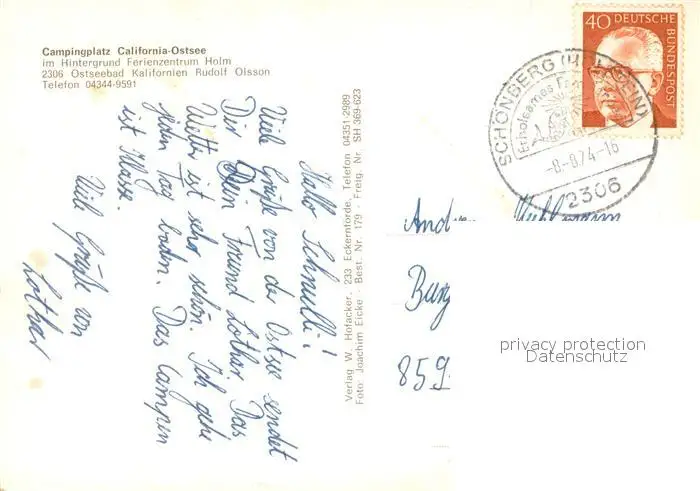 Campingplatz California-Ostsee
im Hintergrund Ferienzentrum Holm
2306 Ostseebad Kalifornien Rudolf Olsson
Telefon 04344-9591
Hallo Schnulli!
Viele Grüße von der Ostsee sendet
Dir Dein Freund Lothar. Das
Wetter ist sehr schön. Ich gehe
jeden Tag baden. Das Campen
ist Klasse.
Viele Grüße von
Lothar
Verlag W. Hofacker, 233 Eckernförde, Telefon 04351-2989
Foto: Joachim Eicke · Best. Nr. 179 · Freig. Nr. SH 369-623
40 DEUTSCHE
BUNDESPOST
SCHÖNBERG (HOLSTEIN)
Erholsames
-8.-8.74-16
2306
Burg
859
privacy protection
Datenschutz